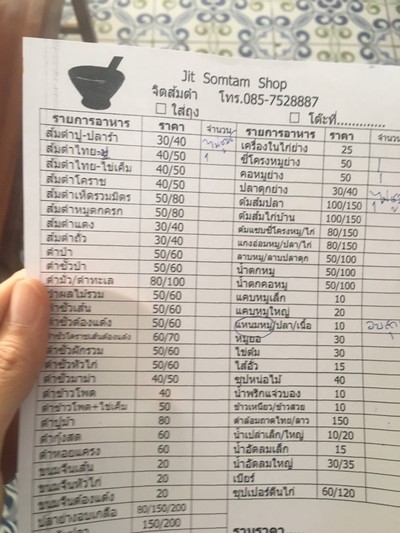 Jit Somtam Shop
จิตส้มตำ โทร.085-7528887
☐ ใส่ถุง ☐ โต๊ะที่.............
รายการอาหาร ราคา จำนวน
ส้มตำปู-ปลาร้า 30/40
ส้มตำไทย-ปู 40/50
ส้มตำไทย-ไข่เค็ม 40/50 1
ส้มตำโคราช 40/50
ส้มตำเห็ดรวมมิตร 50/80
ส้มตำหมูตกครก 50/80
ส้มตำแตง 30/40
ส้มตำถั่ว 30/40
ตำป่า 50/60
ตำซั่วป่า 50/60
ตำมั่ว/ตำทะเล 80/100
ตำผลไม้รวม 50/60
ตำซั่วเส้น 50/60
ตำซั่วต้องแต้ง 50/60
ตำซั่วโคราชเส้นต้องแต้ง 60/70
ตำซั่วผักรวม 50/60
ตำซั่วหัวไก่ 50/60
ตำซั่วมาม่า 40/50
ตำข้าวโพด 40
ตำข้าวโพด+ไข่เค็ม 50
ตำปูม้า 80
ตำกุ้งสด 60
ตำหอยแครง 60
ขนมจีนเส้น 20
ขนมจีนหัวไก่ 20
ขนมจีนต้องแต้ง 20
ปลาย่างอบเกลือ 80/150/200
150/200
รายการอาหาร ราคา จำนวน
เครื่องในไก่ย่าง 25
ซี่โครงหมูย่าง 50
คอหมูย่าง 50 1
ปลาดุกย่าง 30/40
ต้มส้มปลา 100/150 1
ต้มส้มไก่บ้าน 100/150
ต้มแซบซี่โครงหมู/ไก่ 80/150
แกงอ่อมหมู/ปลา/ไก่ 80/150
ลาบหมู/ลาบปลาดุก 50/100
น้ำตกหมู 50/100
น้ำตกคอหมู 50/100
แคบหมูเล็ก 10
แคบหมูใหญ่ 20
แหนมหมู/ปลา/เนื้อ 10
หมูยอ 30
ไข่ต้ม 30
ไส้อั่ว 15
ซุปหน่อไม้ 40
น้ำพริกแจ่วบอง 10
ข้าวเหนียว/ข้าวสวย 10
ตำล้อมถาดไทย/ลาว 150
น้ำเปล่าเล็ก/ใหญ่ 10/20
น้ำอัดลมเล็ก 15
น้ำอัดลมใหญ่ 30/35
เบียร์
ซุปเปอร์ตีนไก่ 60/120
รวมราคา